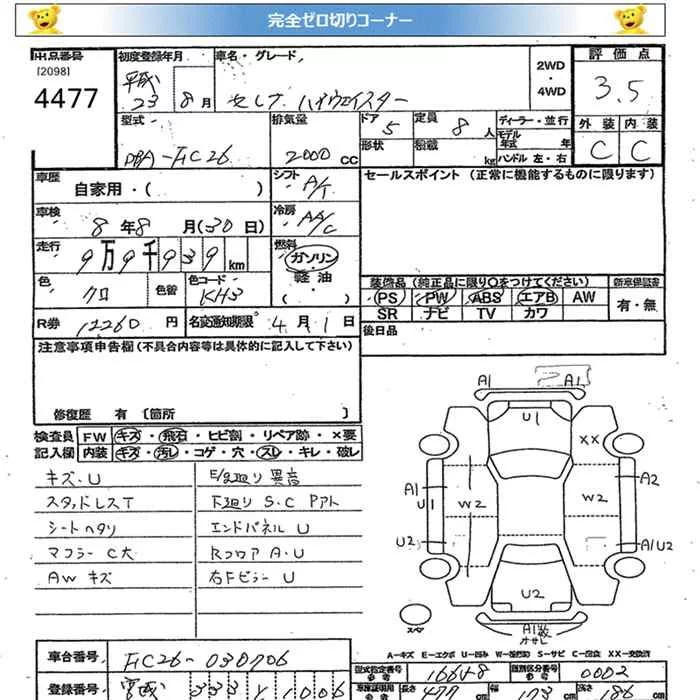 完全ゼロ切りコーナー
出品番号
[2098]
4477
初度登録年月
平成
23 8月
車名・グレード
セレナ ハイウェイスター
2WD
・
4WD
評価点
3.5
外装 内装
C C
型式
DBA-FC26
排気量
2000 CC
ドア 5
形状
定員 8人
積載 kg
ディーラー・並行
モデル
年式 年
ハンドル 左・右
車歴
自家用・( )
シフト A/T
セールスポイント (正常に機能するものに限ります)
車検
8年8月(30日)
冷房 AA/C
走行
9万9千939km
燃料
ガソリン
軽油
・
( )
色
クロ
色替
色コード
KH3
装備品 (純正品に限り○をつけてください)
新車保証書
PS PW ABS エアB AW
SR ナビ TV カワ
有・無
R券 12260円
名変通知期限 4月1日
後日品
注意事項申告欄(不具合内容等は具体的に記入して下さい)
修復歴 有 〔箇所 〕
検査員
記入欄
FW キズ・飛石・ヒビ割・リペア跡・×要
内装 キズ・汚レ・コゲ・穴・スレ・キレ・破レ
キズ、U
スタッドレスT
シートヘタリ
マフラーC大
AWキズ
E/g廻り異音
下廻りS・C Pアト
エンドパネルU
RフロアA・U
右FピラーU
A1 A1
U1
XX
A1
U1
W2
W2
A2
U2
A1U2
U2
スペア
A1数
オサビ
A－キズ E－エクボ U－凹み W－補修跡 S－サビ C－腐食 XX－交換済
車台番号 FC26-030706
型式指定番号 16648
類別区分番号 0002
登録番号
長さ 477cm
幅 173cm
高さ 186